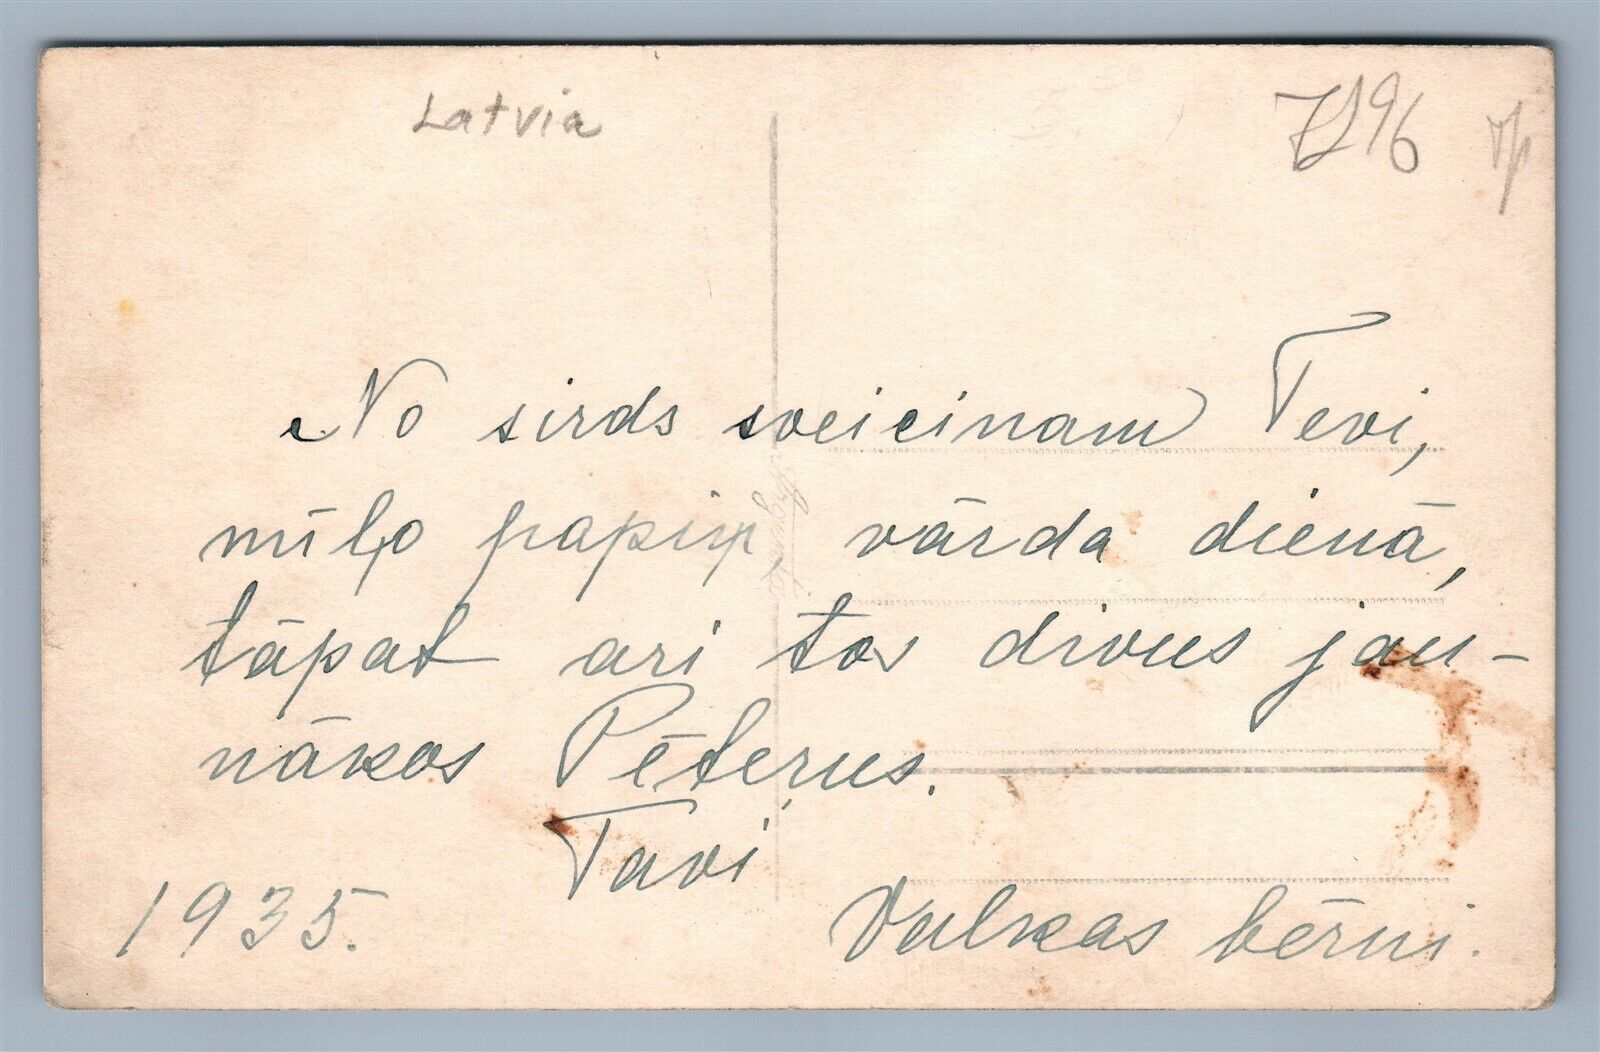 Latvia
7196
No sirds sveicinam Tevi,
mīļo papiņ, vārda dienā,
tāpat ari tos divus jau-
nākos Pēteŗus.
Tavi
1935.
Valkas bērni.